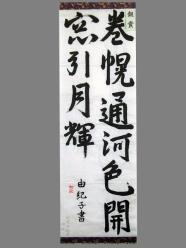 銀賞
巻幌通河色開
窓引月輝
由紀子書